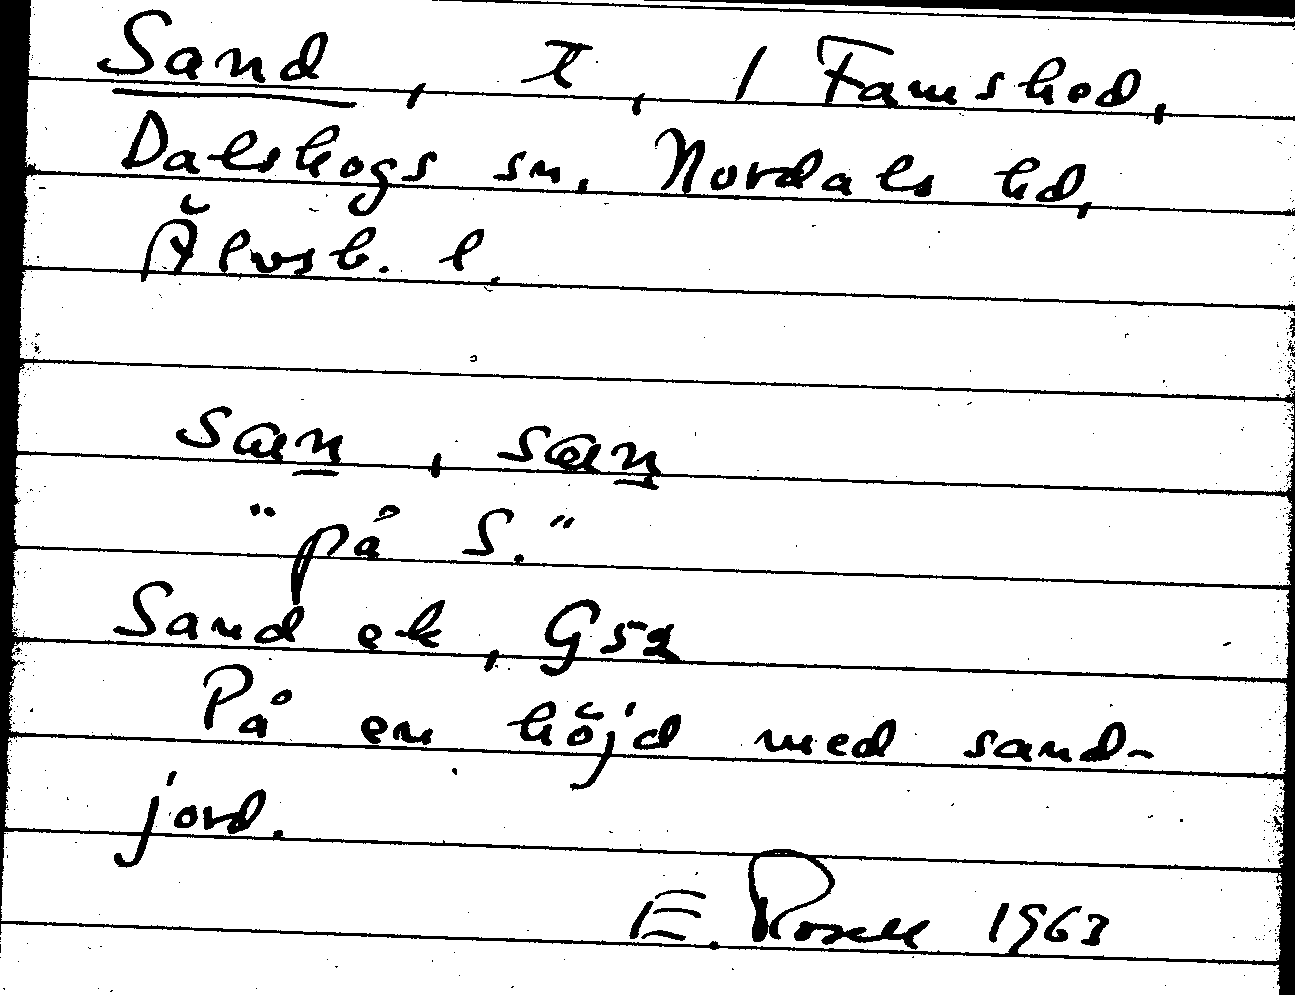 Sand, t, / Famshed,
Dalskogs sn, Nordals hd,
Älvsb. l.
san, san
"på S."
Sand ek, Gsk
På en höjd med sand-
jord.
E. Rosell 1963